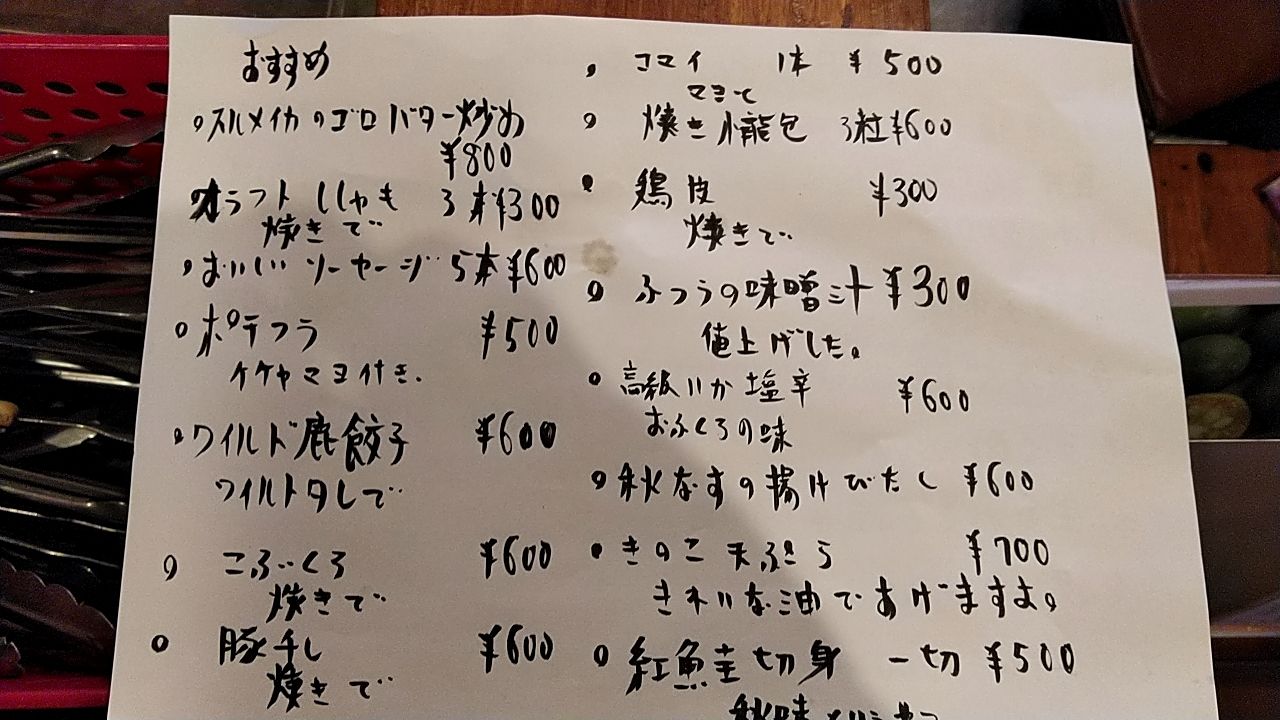 おすすめ
スルメイカのゴロバター炒め
¥800
オラフト ししゃも 3本¥300
焼きで
おいしいソーセージ 5本¥600
ポテフラ ¥500
イケヤマヨ付き.
ワイルド鹿餃子 ¥600
ワイルドダレで
こぶくろ ¥600
焼きで
豚干し ¥600
焼きで
コマイ 1本 ¥500
マヨで
焼き小龍包 3粒¥600
鶏皮 ¥300
焼きで
ふつうの味噌汁 ¥300
値上げした。
高級いか塩辛 ¥600
おふくろの味
秋なすの揚げびたし ¥600
きのこ天ぷら ¥700
きれいな油であげますよ。
紅鮭切身 一切 ¥500
秋味